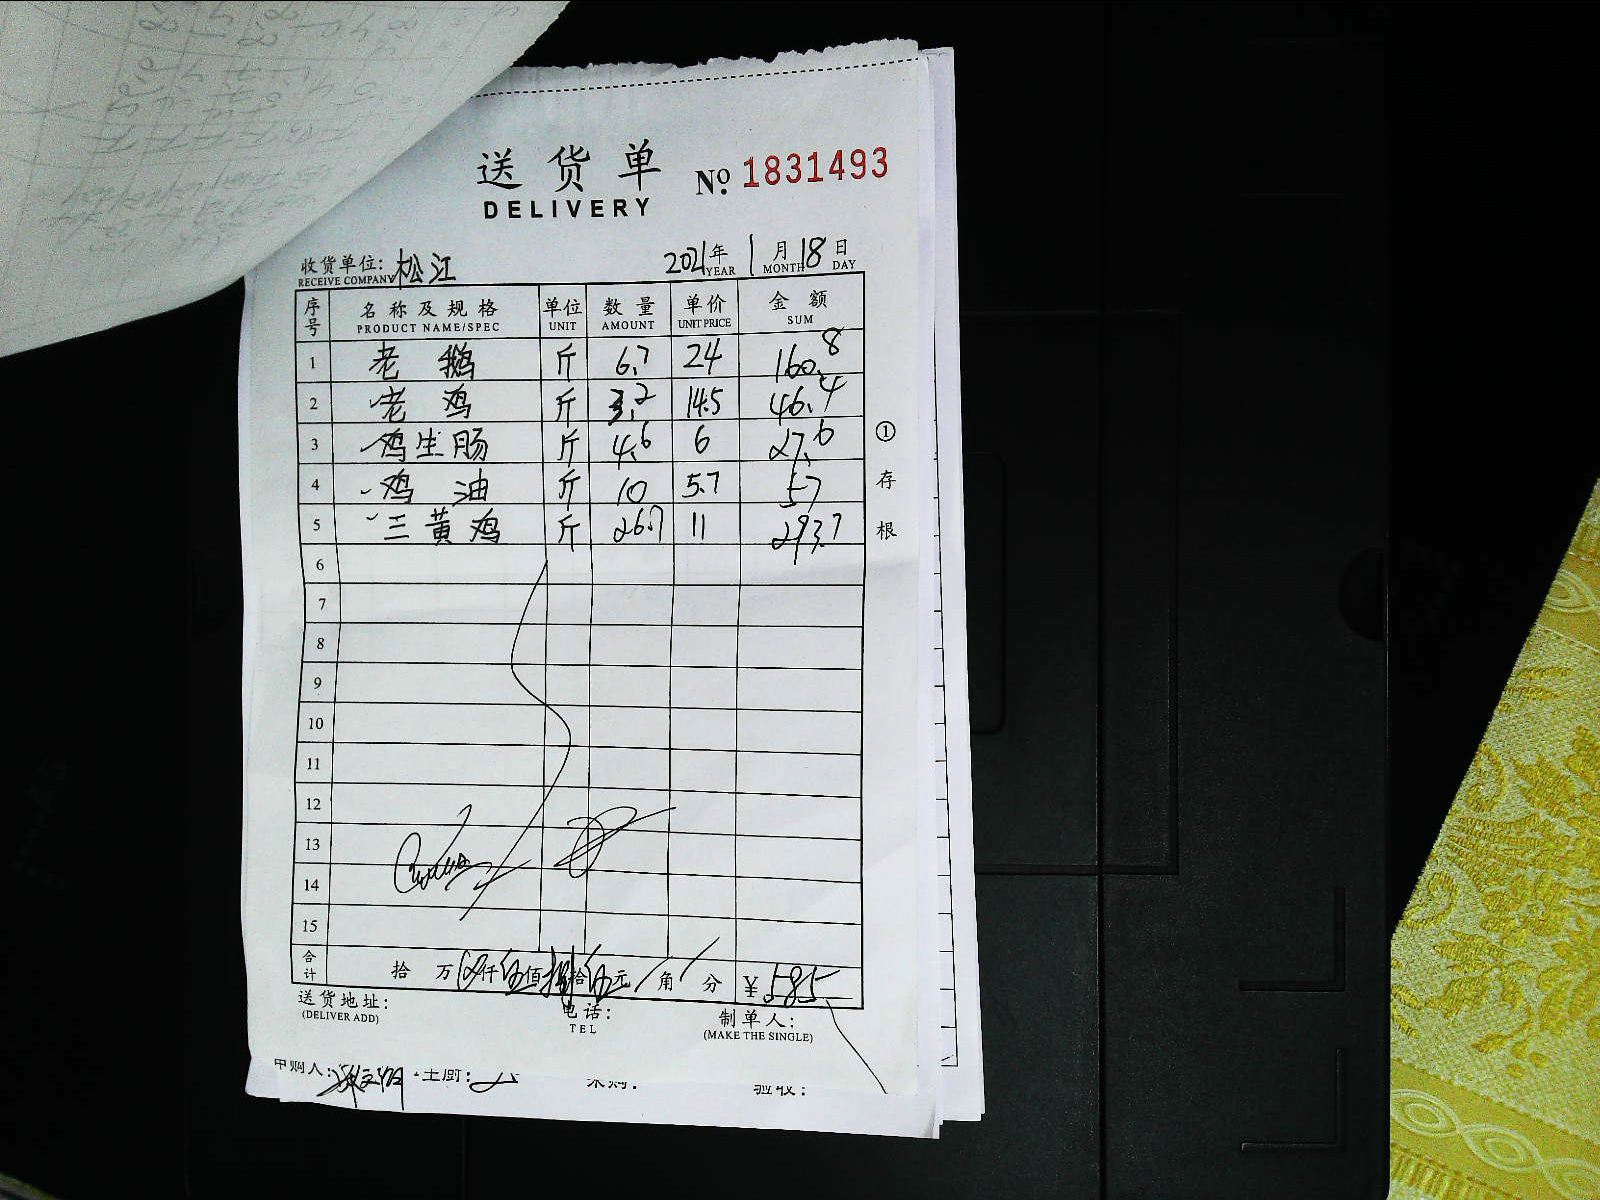 送货单 № 1831493
DELIVERY
收货单位: 松江 2021年 1月 18日
RECEIVE COMPANY YEAR MONTH DAY
序号 名称及规格 单位 数量 单价 金额
PRODUCT NAME/SPEC UNIT AMOUNT UNIT PRICE SUM
1 老鹅 斤 6.7 24 160.8
2 老鸡 斤 3.2 14.5 46.4
3 鸡生肠 斤 4.6 6 27.6
4 鸡油 斤 10 5.7 57
5 三黄鸡 斤 26.7 11 293.7
6
7
8
9
10
11
12
13
14
15
合计 拾 万 仟 伍佰 捌拾 伍元 / 角 / 分 ¥ 585
① 存根
送货地址: 电话: 制单人:
(DELIVER ADD) TEL (MAKE THE SINGLE)
申购人: 主厨: 采购: 验收: